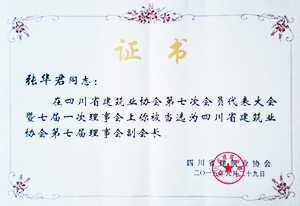 证书
张华君同志：
在四川省建筑业协会第七次会员代表大会
暨七届一次理事会上你被当选为四川省建筑业
协会第七届理事会副会长。
四川省建筑业协会
二〇一五年九月二十九日